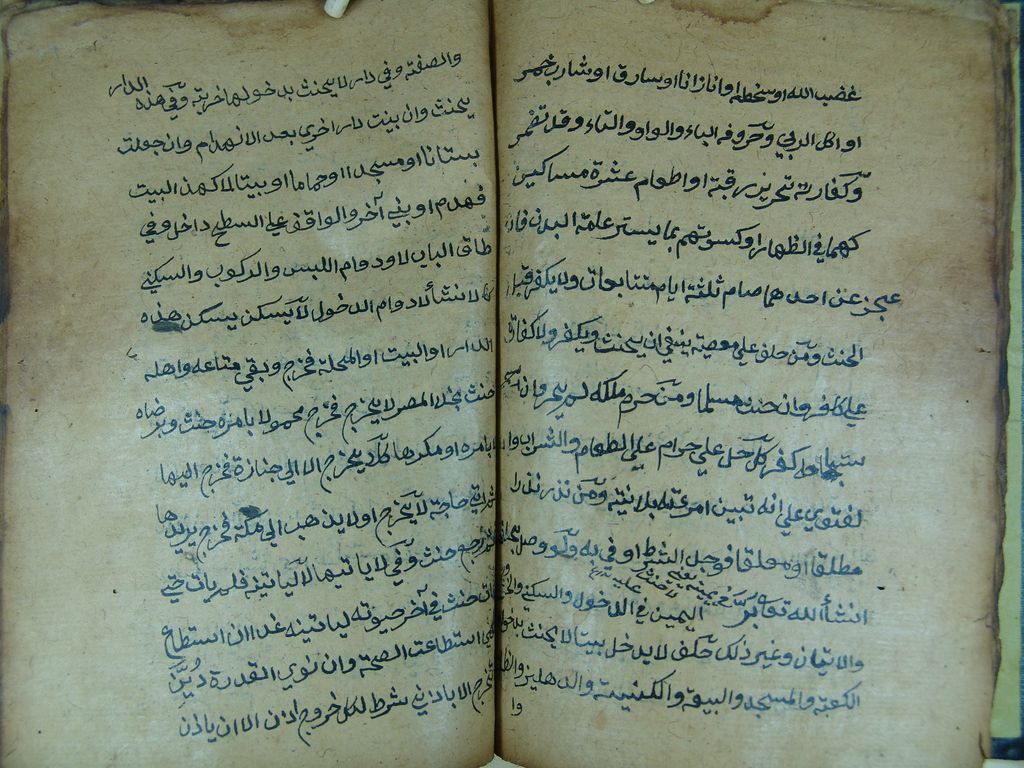 غضب الله او سخطه او انا زانا او سارق او شارب خمر
او اكل الربي وحروفه الباء والواو والتاء وقد تضمر
وكفارته تحرير رقبة او اطعام عشرة مساكين
كهما في الظهار او كسوتهم بما يستر عامة البدن فان
عجز عن احدهما صام ثلثة ايام متتابعات ولا يكفر قبل
الحنث ومن حلف علي معصية ينبغي ان يحنث ويكفر ولا كفارة
علي كافر وان حنث مسلما ومن حرم ملكه لم يحرم وان
كفر كل حل علي حرام علي الطعام والشراب
لفتوي علي انه تبين امرءته بلا نية ومن نذر نذرا
مطلقا او معلقا فوجد الشرط او في به ولو وصل بحلفه
انشأ الله تعالي بر في يمينه اليمين في الدخول والسكني
والاتيان وغير ذلك حلف لا يدخل بيتا لا يحنث بدخول
الكعبة والمسجد والبيعة والكنيسة والدهليز
وا
والصفة وفي دار لا يحنث بدخولها خربة وفي هذه الدار
يحنث وان بنيت دار اخري بعد الانهدام وان جعلت
بستانا او مسجدا او حماما او بيتا لا كهذا البيت
فهدم او بني آخر والواقف علي السطح داخل وفي
طاق الباب لا ودوام اللبس والركوب والسكني
كالانشأ لا دوام الدخول لا يسكن هذه
الدار او البيت او المحلة فخرج وبقي متاعه واهله
حنث بخلا المصر لا يخرج فخرج محمولا بامره حنث وبرضاه
لا بامره او مكرها لا يخرج الا الي جنازة فخرج اليها
ثم اتي حاجة لا يخرج او لا يذهب الي مكة فخرج يريدها
ثم رجع حنث وفي لا ياتيها لا لياتينه فلم يات حتي
مات حنث في آخر حيوته لياتينه غدا ان استطاع
فهي استطاعت الصحة وان نوي القدرة دين
لا تخرج الا باذني شرط لكل خروج اذن الا ان ياذن